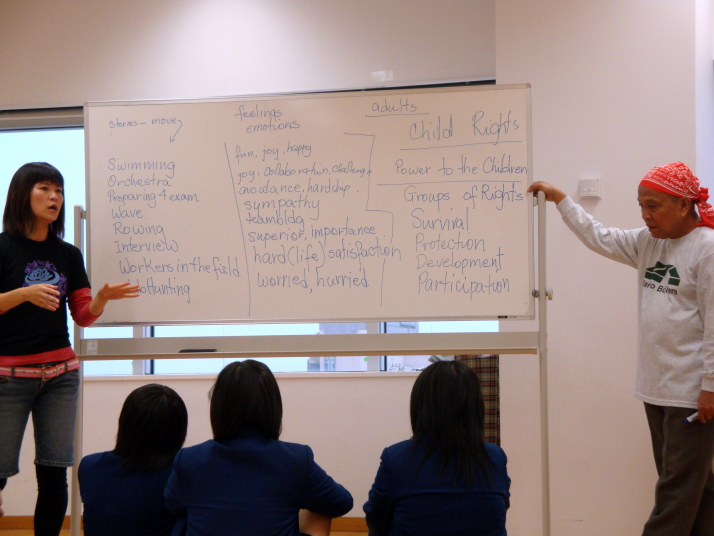 stories - move
Swimming
Orchestra
Preparing 4 exam
Wave
Rowing
Interview
Workers in the field
Hunting
feelings
emotions
fun, joy, happy
joy, collaboration, challenge
avoidance, hardship.
sympathy
teambldg
superior, importance
hard (life) satisfaction
worried, hurried
adults
Child Rights
Power to the Children
Groups of Rights
Survival
Protection
Development
Participation